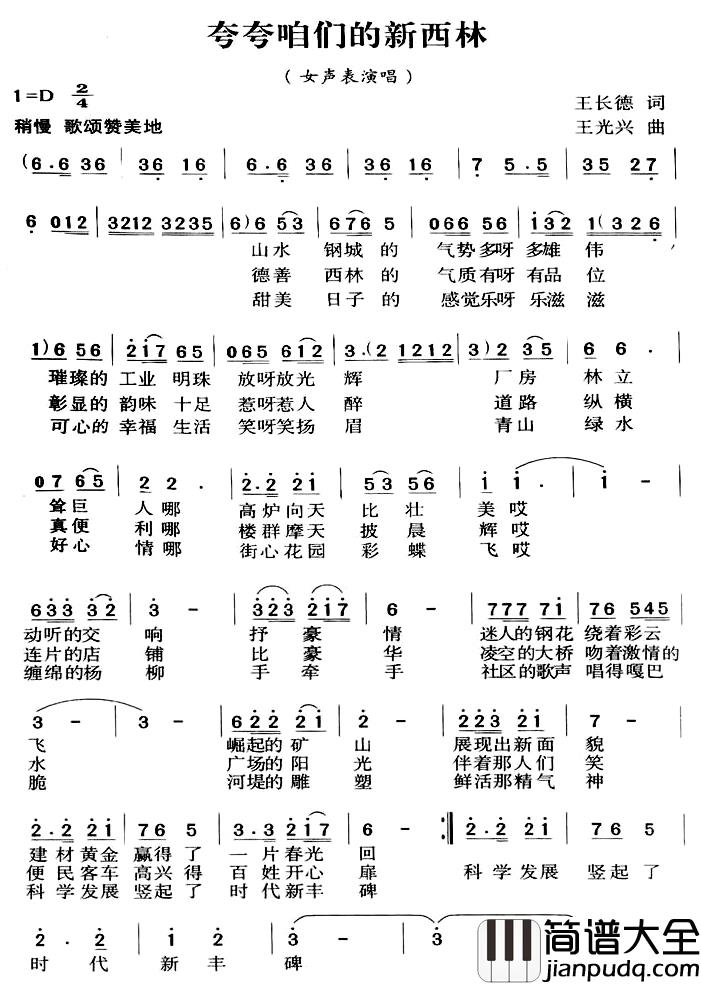 夸夸咱们的新西林
（女声表演唱）
1=D 2/4
王长德 词
稍慢 歌颂赞美地
王光兴 曲
(6·6 36 | 36 16 | 6·6 36 | 36 16 | 7 5·5 | 35 27 |
6 012 | 3212 3235 | 6) 6 53 | 676 5 | 066 56 | 132 1( | 3 2 6 |
山水 钢城的 气势多呀 多雄伟
德善 西林的 气质有呀 有品位
甜美 日子的 感觉乐呀 乐滋滋
1) 6 56 | 217 65 | 065 612 | 3·(2 1212 | 3) 2 35 | 6 6· |
璀璨的 工业 明珠 放呀放光 辉 厂房 林立
彰显的 韵味 十足 惹呀惹人 醉 道路 纵横
可心的 幸福 生活 笑呀笑扬 眉 青山 绿水
07 65 | 2 2· | 2·2 21 | 53 56 | 1 1· | 1 - |
耸巨 人哪 高炉向天 比壮 美哎
真便 利哪 楼群摩天 披晨 辉哎
好心 情哪 街心花园 彩蝶 飞哎
633 32 | 3 - | 323 217 | 6 - | 777 71 | 76 545 |
动听的交 响 抒豪 情 迷人的钢花 绕着彩云
连片的店 铺 比豪 华 凌空的大桥 吻着激情的
缠绵的杨 柳 手牵 手 社区的歌声 唱得嘎巴
3 - | 3 - | 622 21 | 2 - | 223 21 | 7 - |
飞 崛起的矿 山 展现出新面 貌
水 广场的阳 光 伴着那人们 笑
脆 河堤的雕 塑 鲜活那精气 神
2·2 21 | 76 5 | 3·3 217 | 6 - :| 2·2 21 | 76 5 |
建材黄金 赢得了 一片春光 回
便民客车 高兴得 百姓开心 扉 科学发展 竖起了
科学发展 竖起了 时代新丰 碑
2· 2 | 1 2 | 3 - | 3 -
时 代 新 丰 碑
简谱大全
jianpudq.com